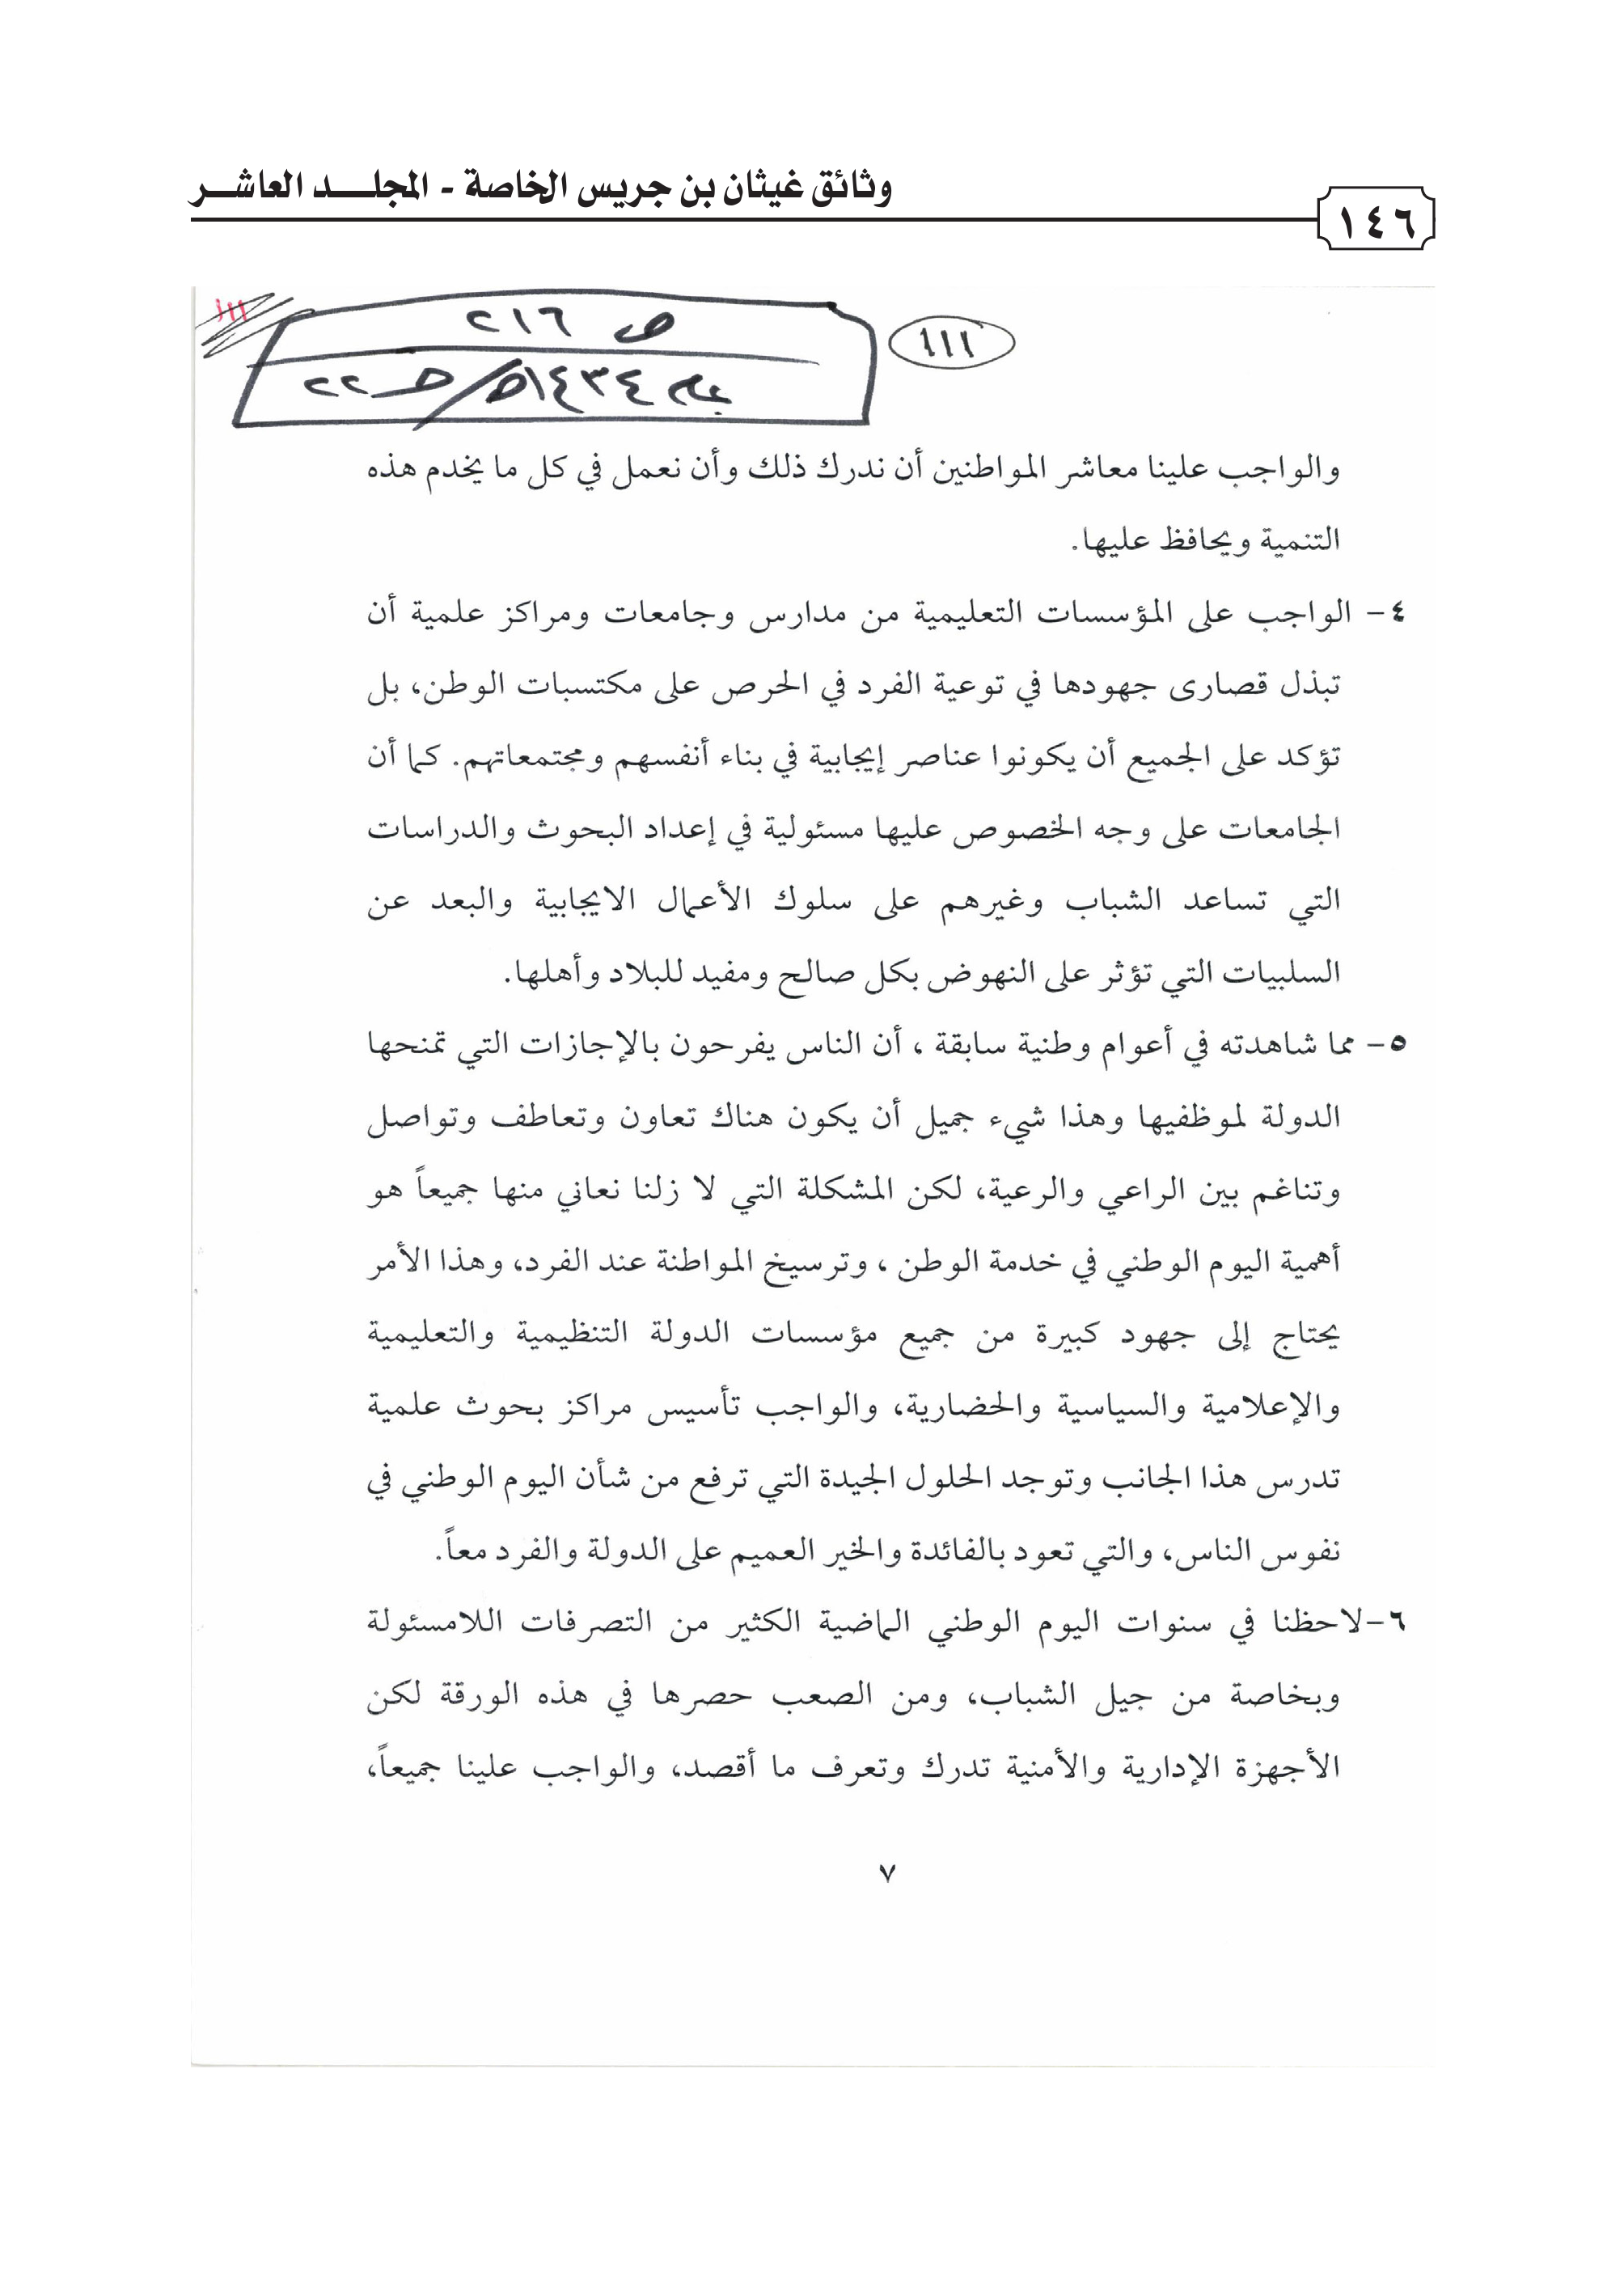 وثائق غيثان بن جريس الخاصة - المجلد العاشر
١٤٦
١١١
ص ٢١٦
١١١
عام ١٤٣٤هـ/حـ ٢٢
والواجب علينا معاشر المواطنين أن ندرك ذلك وأن نعمل في كل ما يخدم هذه
التنمية ويحافظ عليها.
٤- الواجب على المؤسسات التعليمية من مدارس وجامعات ومراكز علمية أن
تبذل قصارى جهودها في توعية الفرد في الحرص على مكتسبات الوطن، بل
تؤكد على الجميع أن يكونوا عناصر إيجابية في بناء أنفسهم ومجتمعاتهم. كما أن
الجامعات على وجه الخصوص عليها مسئولية في إعداد البحوث والدراسات
التي تساعد الشباب وغيرهم على سلوك الأعمال الايجابية والبعد عن
السلبيات التي تؤثر على النهوض بكل صالح ومفيد للبلاد وأهلها.
٥- مما شاهدته في أعوام وطنية سابقة ، أن الناس يفرحون بالإجازات التي تمنحها
الدولة لموظفيها وهذا شيء جميل أن يكون هناك تعاون وتعاطف وتواصل
وتناغم بين الراعي والرعية، لكن المشكلة التي لا زلنا نعاني منها جميعاً هو
أهمية اليوم الوطني في خدمة الوطن ، وترسيخ المواطنة عند الفرد، وهذا الأمر
يحتاج إلى جهود كبيرة من جميع مؤسسات الدولة التنظيمية والتعليمية
والإعلامية والسياسية والحضارية، والواجب تأسيس مراكز بحوث علمية
تدرس هذا الجانب وتوجد الحلول الجيدة التي ترفع من شأن اليوم الوطني في
نفوس الناس، والتي تعود بالفائدة والخير العميم على الدولة والفرد معاً.
٦-لاحظنا في سنوات اليوم الوطني الماضية الكثير من التصرفات اللامسئولة
وبخاصة من جيل الشباب، ومن الصعب حصرها في هذه الورقة لكن
الأجهزة الإدارية والأمنية تدرك وتعرف ما أقصد، والواجب علينا جميعاً،
٧